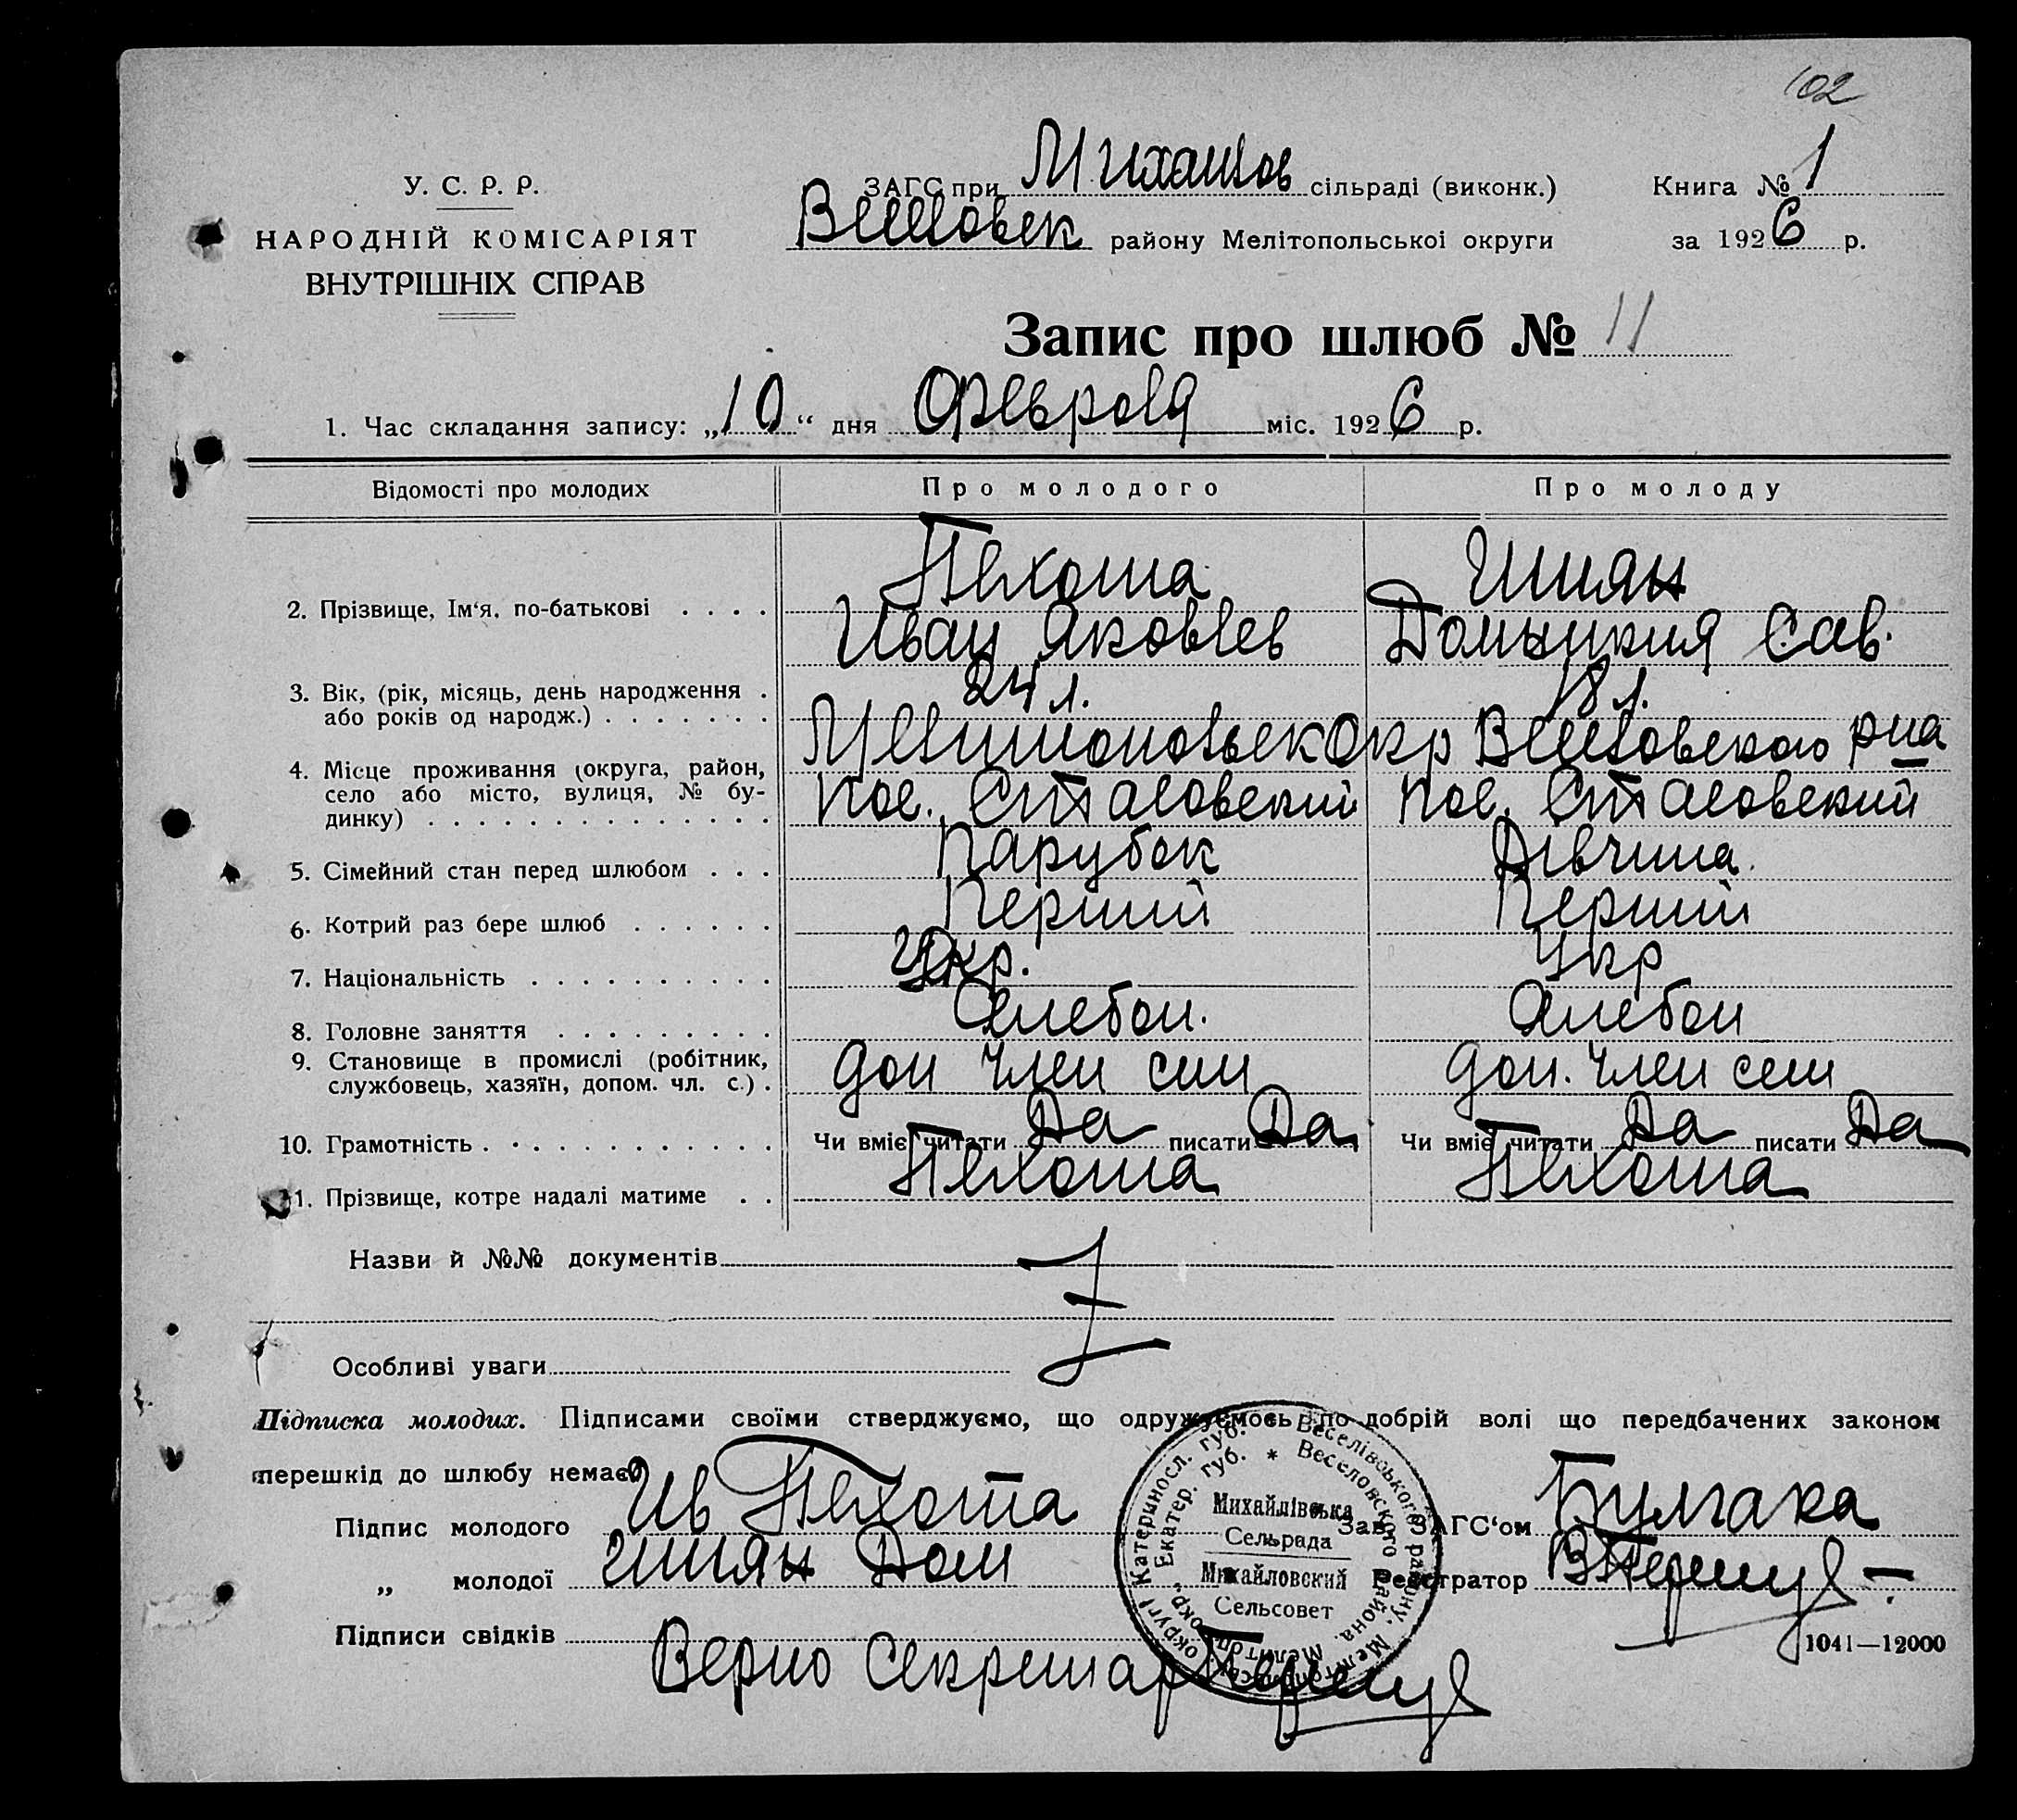 102
У. С. Р. Р.
НАРОДНІЙ КОМІСАРІЯТ
ВНУТРІШНІХ СПРАВ
ЗАГС при Михайлов сільраді (виконк.)
Веселовск району Мелітопольської округи
Книга № 1
за 1926 р.
Запис про шлюб № 11
1. Час складання запису: „10“ дня Февраля міс. 1926 р.
Відомості про молодих Про молодого Про молоду
2. Прізвище, Ім'я, по-батькові . . . . Пехота Шиян
Иван Яковлев Домникия Сав.
3. Вік, (рік, місяць, день народження . 24 л. 18 л.
або років од народж.) . . . . . . .
4. Місце проживання (округа, район, Мелитопольск Окр Веселовского р-на
село або місто, вулиця, № бу- пос. Стасовский пос. Стасовский
динку) . . . . . . . . . . . . .
5. Сімейний стан перед шлюбом . . . Парубок Дівчина
6. Котрий раз бере шлюб . . . . . . Перший Перший
7. Національність . . . . . . . . . . Укр. Укр
8. Головне заняття . . . . . . . . . Хлебоп. Хлебоп
9. Становище в промислі (робітник, доп член сем доп. член сем
службовець, хазяїн, допом. чл. с.) .
10. Грамотність . . . . . . . . . . . . Чи вміє читати Да писати Да Чи вміє читати Да писати Да
11. Прізвище, котре надалі матиме . . Пехота Пехота
Назви й №№ документів
Особливі уваги
Підписка молодих. Підписами своїми стверджуємо, що одружуємось по добрій волі що передбачених законом
перешкід до шлюбу немає
Підпис молодого Ив Пехота Зав. ЗАГС'ом Булгака
„ молодої Шиян Дом Реєстратор
Підписи свідків
1041—12000
Верно Секретар
Катериносл. губ. Веселівського району. Мелітопільськ. округ!
Екатер. губ. * Веселовского района. Мелитоп. окр.
Михайлівська
Сельрада
Михайловский
Сельсовет